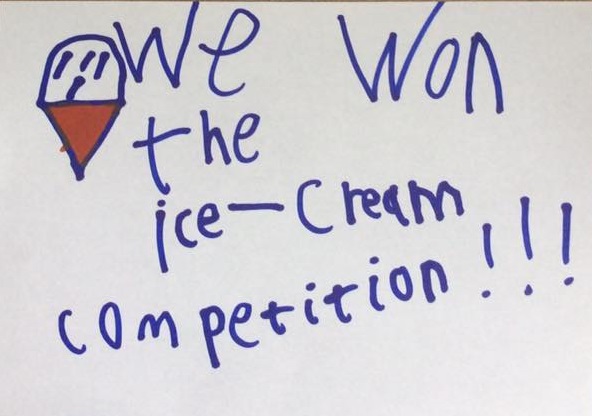 We Won
the
ice-Cream
competition!!!